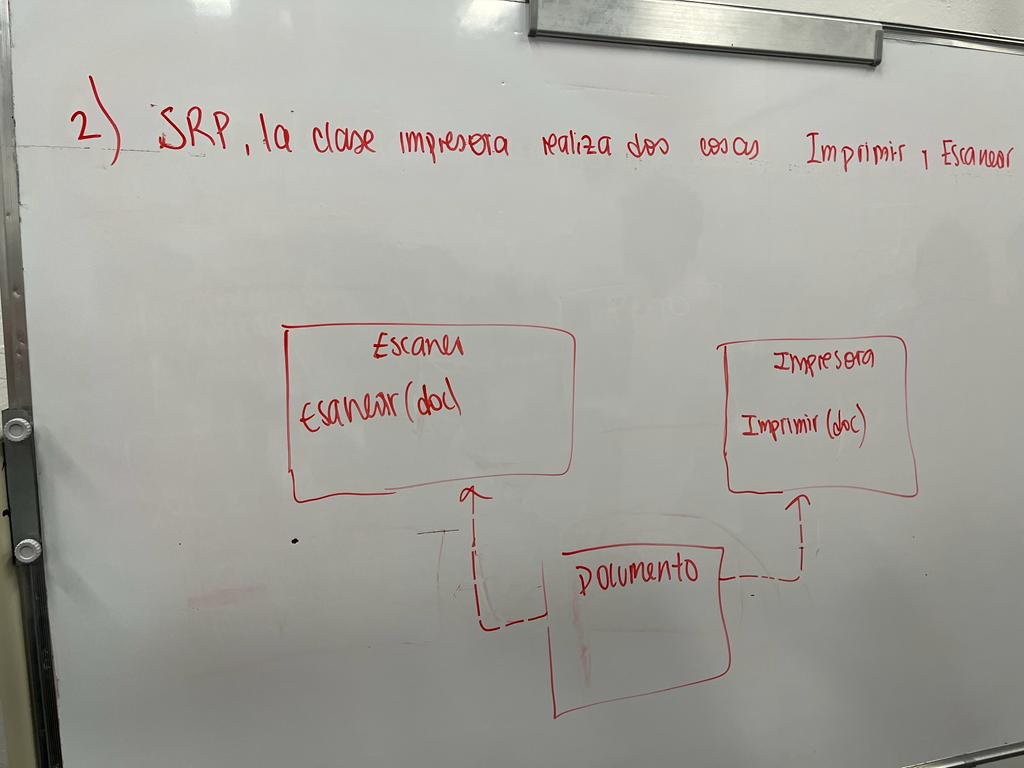 2) SRP, la clase impresora realiza dos cosas Imprimir y Escanear
Escaner
Esanear (doc)
Impresora
Imprimir (doc)
Documento